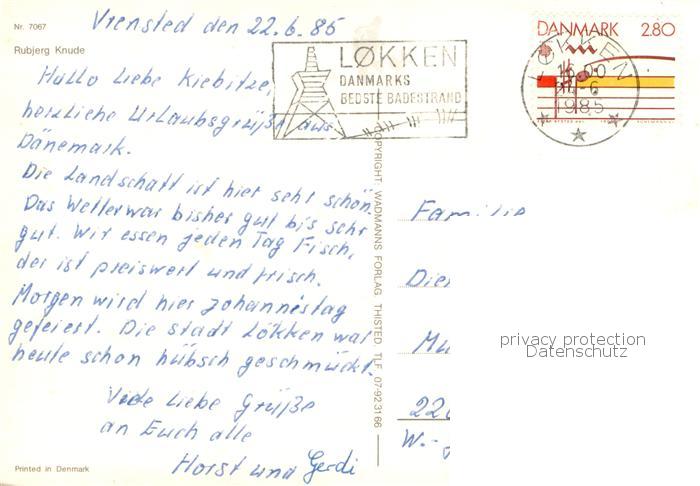 Nr. 7067
Vrensted den 22.6.85
Rubjerg Knude
Hallo liebe Kiebitze,
herzliche Urlaubsgrüße aus
Dänemark.
Die Landschaft ist hier sehr schön.
Das Wetter war bisher gut bis sehr
gut. Wir essen jeden Tag Fisch,
der ist preiswert und frisch.
Morgen wird hier Johannestag
gefeiert. Die Stadt Løkken war
heute schon hübsch geschmückt.
Viele liebe Grüße
an Euch alle
Horst und Gerdi
Printed in Denmark
LØKKEN
DANMARKS
BEDSTE BADESTRAND
DANMARK 2.80
LØKKEN
16-00
1985
COPYRIGHT: WADMANNS FORLAG THISTED TLF. 07-923166
Familie
Die
Mu
22
W.-
privacy protection
Datenschutz